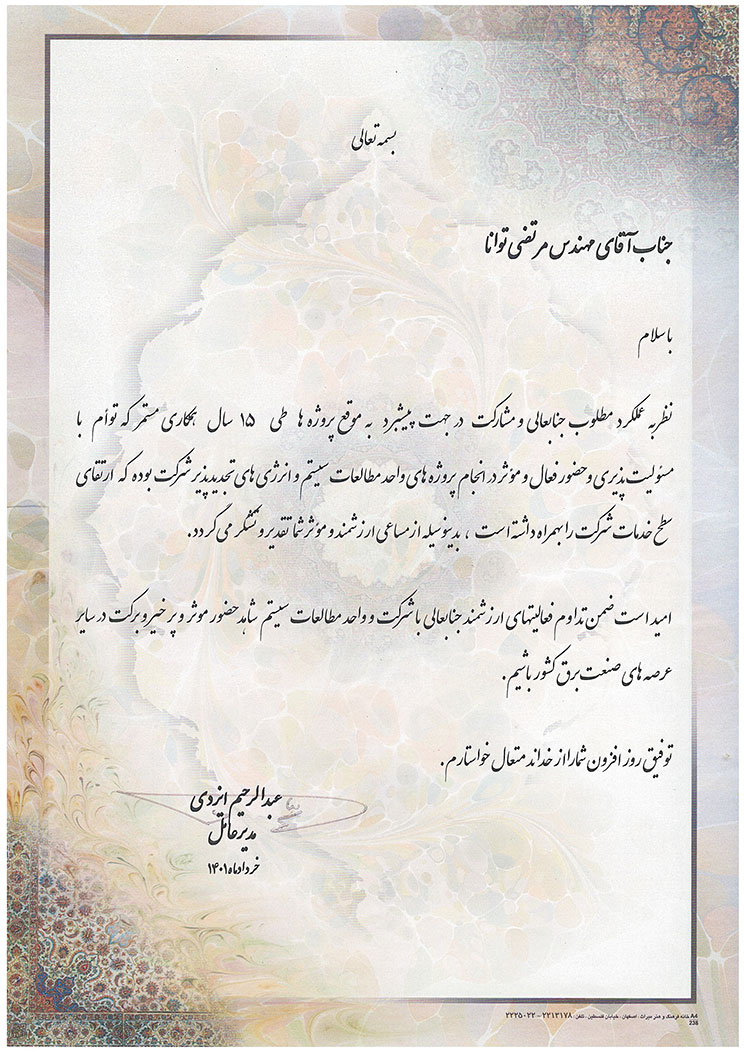 بسمه تعالی
جناب آقای مهندس مرتضی توانا
با سلام
نظر به عملکرد مطلوب جنابعالی و مشارکت در جهت پیشبرد به موقع پروژه ها طی ۱۵ سال همکاری مستمر که توأم با
مسئولیت پذیری و حضور فعال و مؤثر در انجام پروژه های واحد مطالعات سیستم و انرژی های تجدیدپذیر شرکت بوده که ارتقای
سطح خدمات شرکت را بهمراه داشته است ، بدینوسیله از مساعی ارزشمند و مؤثر شما تقدیر و تشکر می گردد.
امید است ضمن تداوم فعالیتهای ارزشمند جنابعالی با شرکت و واحد مطالعات سیستم شاهد حضور موثر و پر خیر و برکت در سایر
عرصه های صنعت برق کشور باشیم.
توفیق روز افزون شما را از خداند متعال خواستارم.
عبدالرحیم ایزدی
مدیرعامل
خردادماه ۱۴۰۱
A4 خانه فرهنگ و هنر میراث ، اصفهان ، خیابان فلسطین ، تلفن: ۲۲۱۳۱۷۸ - ۲۲۲۵۰۲۲
238